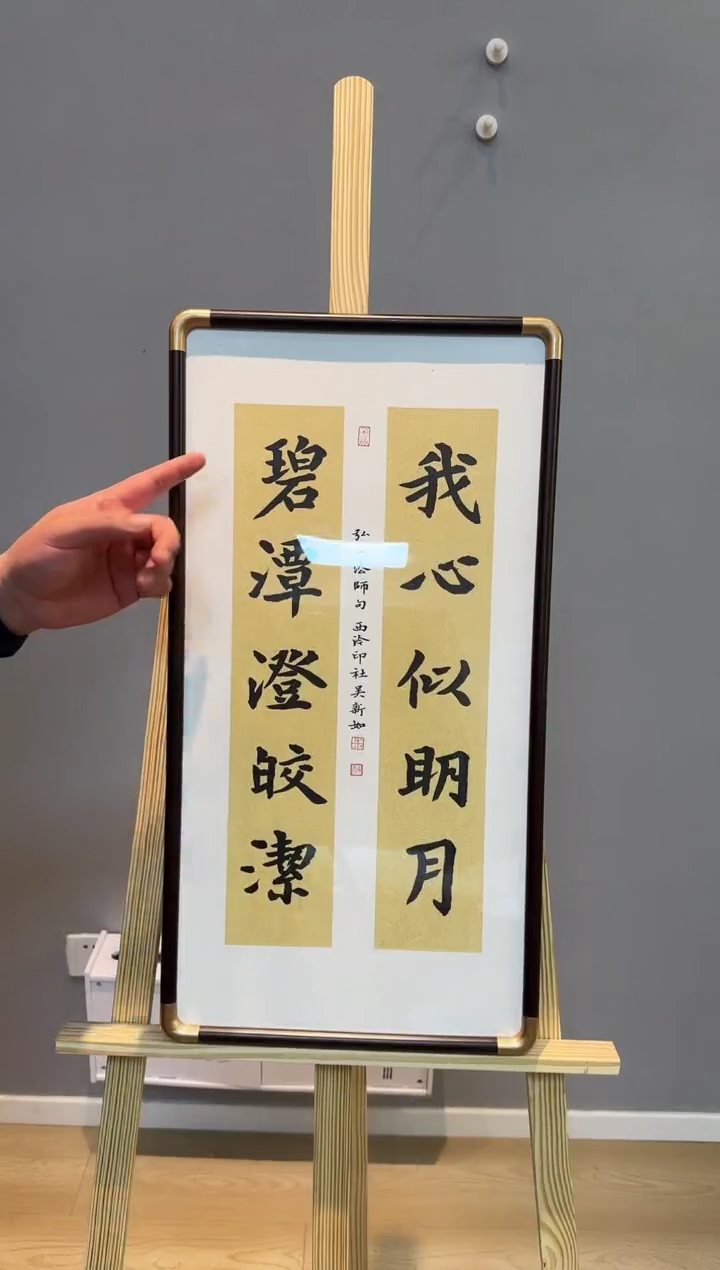 我心似明月
碧潭澄皎潔
弘一法師句 西泠印社吴新如